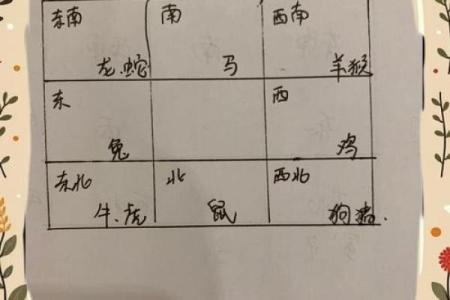 东南 南 西南
龙.蛇 马 羊猴
东 西
兔 鸡
东北 北 西北
牛.虎 鼠 狗猪.